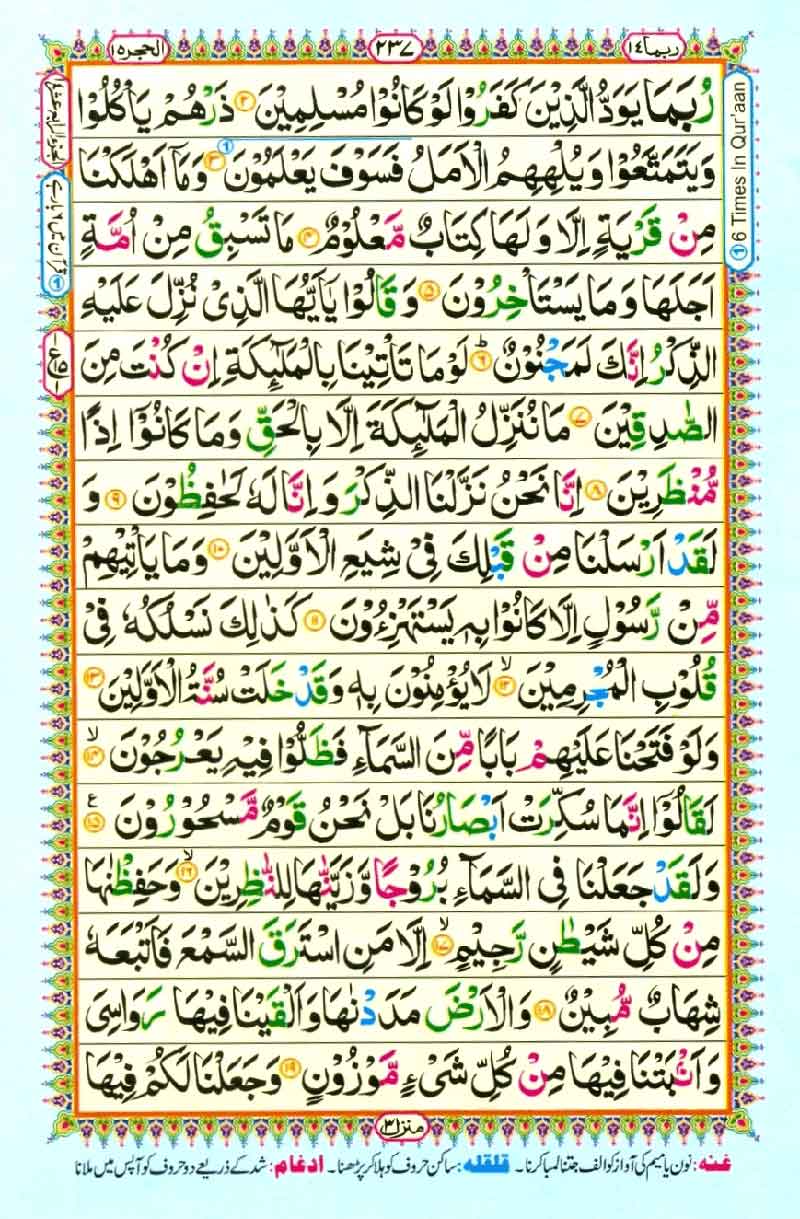 ربما ١٤
٢٣٧
الحجر ١٥
رُبَمَا يَوَدُّ الَّذِيْنَ كَفَرُوْا لَوْ كَانُوْا مُسْلِمِيْنَ ۝٢ ذَرْهُمْ يَاْكُلُوْا
وَيَتَمَتَّعُوْا وَيُلْهِهِمُ الْاَمَلُ فَسَوْفَ يَعْلَمُوْنَ ۝٣ وَمَاۤ اَهْلَكْنَا
مِنْ قَرْيَةٍ اِلَّا وَلَهَا كِتَابٌ مَّعْلُوْمٌ ۝٤ مَا تَسْبِقُ مِنْ اُمَّةٍ
اَجَلَهَا وَمَا يَسْتَاْخِرُوْنَ ۝٥ وَقَالُوْا يٰۤاَيُّهَا الَّذِيْ نُزِّلَ عَلَيْهِ
الذِّكْرُ اِنَّكَ لَمَجْنُوْنٌ ؕ۝٦ لَوْ مَا تَاْتِيْنَا بِالْمَلٰٓئِكَةِ اِنْ كُنْتَ مِنَ
الصّٰدِقِيْنَ ۝٧ مَا نُنَزِّلُ الْمَلٰٓئِكَةَ اِلَّا بِالْحَقِّ وَمَا كَانُوْۤا اِذًا
مُّنْظَرِيْنَ ۝٨ اِنَّا نَحْنُ نَزَّلْنَا الذِّكْرَ وَاِنَّا لَهٗ لَحٰفِظُوْنَ ۝٩ وَ
لَقَدْ اَرْسَلْنَا مِنْ قَبْلِكَ فِيْ شِيَعِ الْاَوَّلِيْنَ ۝١٠ وَمَا يَاْتِيْهِمْ
مِّنْ رَّسُوْلٍ اِلَّا كَانُوْا بِهٖ يَسْتَهْزِءُوْنَ ۝١١ كَذٰلِكَ نَسْلُكُهٗ فِيْ
قُلُوْبِ الْمُجْرِمِيْنَ ۙ۝١٢ لَا يُؤْمِنُوْنَ بِهٖ وَقَدْ خَلَتْ سُنَّةُ الْاَوَّلِيْنَ ۝١٣
وَلَوْ فَتَحْنَا عَلَيْهِمْ بَابًا مِّنَ السَّمَآءِ فَظَلُّوْا فِيْهِ يَعْرُجُوْنَ ۙ۝١٤
لَقَالُوْۤا اِنَّمَا سُكِّرَتْ اَبْصَارُنَا بَلْ نَحْنُ قَوْمٌ مَّسْحُوْرُوْنَ ۝١٥ ع
وَلَقَدْ جَعَلْنَا فِي السَّمَآءِ بُرُوْجًا وَّزَيَّنّٰهَا لِلنّٰظِرِيْنَ ۙ۝١٦ وَحَفِظْنٰهَا
مِنْ كُلِّ شَيْطٰنٍ رَّجِيْمٍ ۙ۝١٧ اِلَّا مَنِ اسْتَرَقَ السَّمْعَ فَاَتْبَعَهٗ
شِهَابٌ مُّبِيْنٌ ۝١٨ وَالْاَرْضَ مَدَدْنٰهَا وَاَلْقَيْنَا فِيْهَا رَوَاسِيَ
وَاَنْۢبَتْنَا فِيْهَا مِنْ كُلِّ شَيْءٍ مَّوْزُوْنٍ ۝١٩ وَجَعَلْنَا لَكُمْ فِيْهَا
6 Times In Qur'aan
الجزء الرابع عشر
منزل ٣
غنه: نون یا میم کی آواز کو الف جتنا لمبا کرنا۔ قلقله: ساکن حروف کو ہلا کر پڑھنا۔ ادغام: شد کے ذریعے دو حروف کو آپس میں ملانا